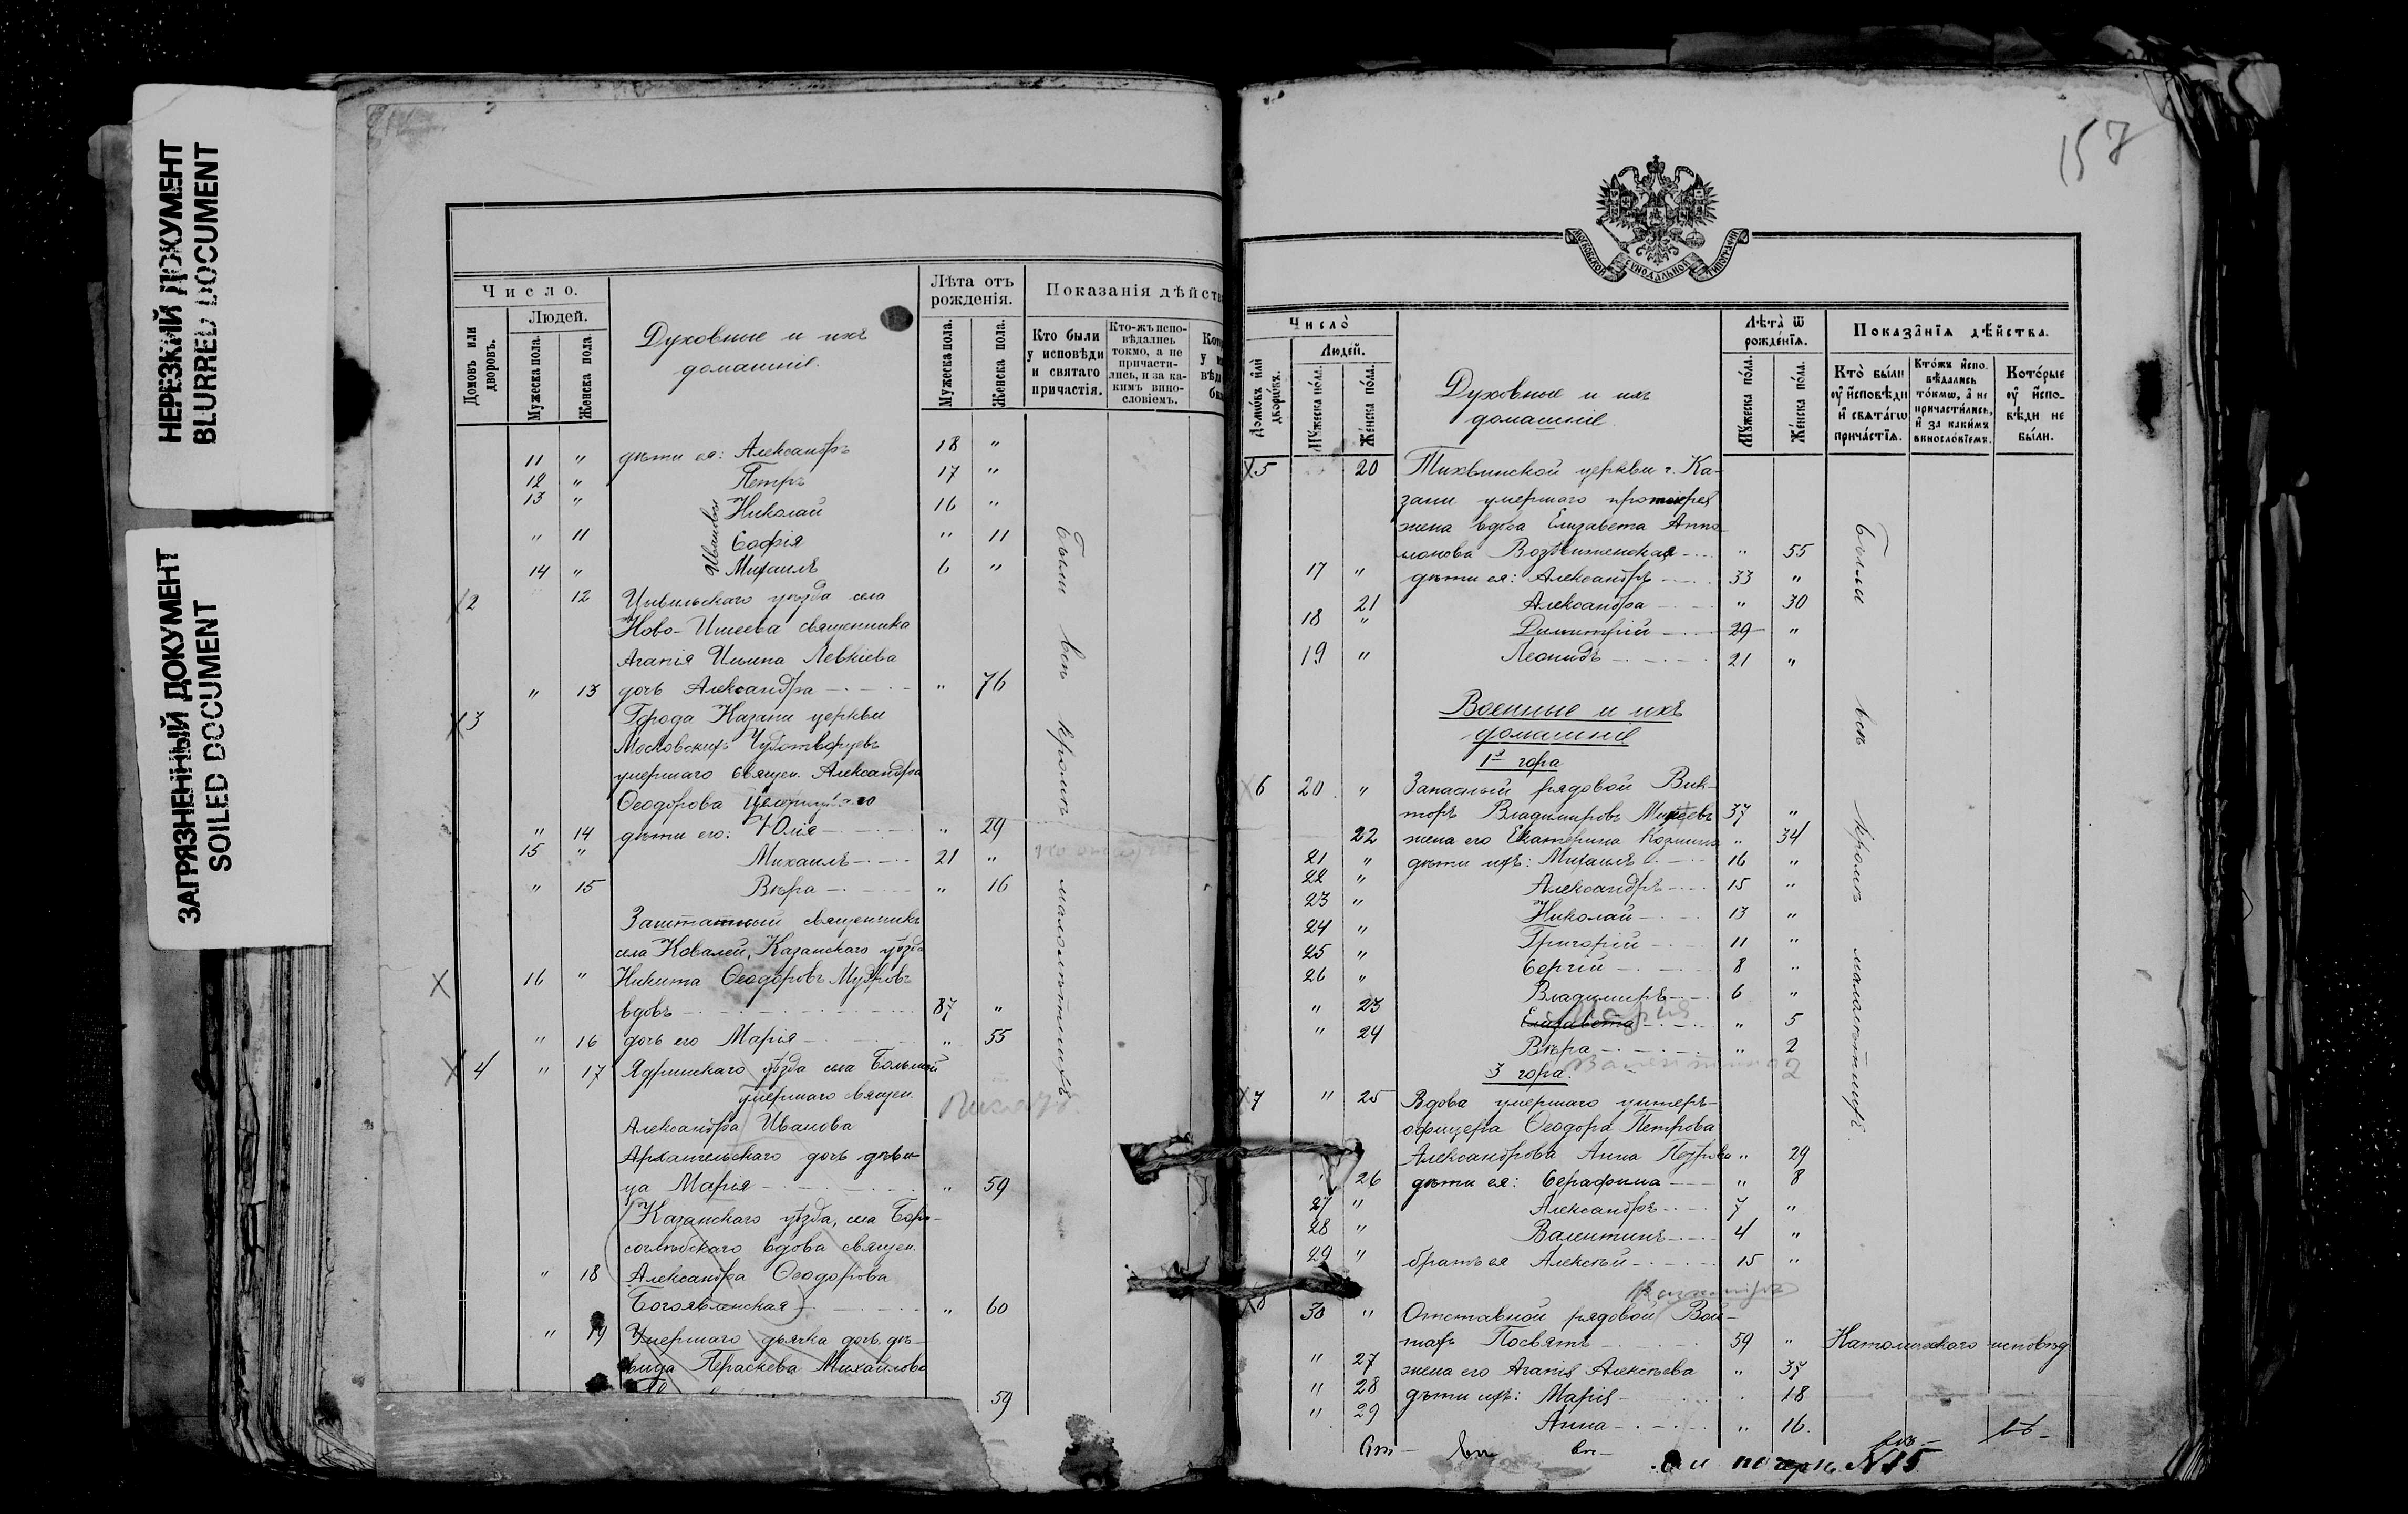 НЕРЕЗКИЙ ДОКУМЕНТ
BLURRED DOCUMENT
ЗАГРЯЗНЕННЫЙ ДОКУМЕНТ
SOILED DOCUMENT
Число.
Людей.
Домовъ или дворовъ.
Мужеска пола.
Женска пола.
Духовные и ихъ
домашніе.
Лѣта отъ
рожденія.
Мужеска пола.
Женска пола.
Показанія дѣйств
Кто были
у исповѣди
и святаго
причастія.
Кто-жъ испо-
вѣдались
токмо, а не
причасти-
лись, и за ка-
кимъ вино-
словіемъ.
11 " дѣти ея: Александръ 18 "
12 " Петръ 17 "
13 " Николай 16 "
" 11 Софія " 11
14 " Михаилъ 6 "
Ивановы
Были всѣ кромѣ малолѣтнихъ
2 12 Цивильскаго уѣзда села
Ново-Ишеева священника
Агапія Ильина Левкіева
" 13 дочь Александра " 76
3 Города Казани церкви
Московскихъ Чудотворцевъ
умершаго священ. Александра
Ѳеодорова
" 14 дѣти его: Юлія " 29
15 " Михаилъ 21 "
" 15 Вѣра " 16
Заштатный священникъ
села Ковалей, Казанскаго уѣзда
16 " Никита Ѳеодоровъ Мудровъ
вдовъ 87 "
" 16 дочь его Марья " 55
4 " 17 Ядринскаго уѣзда села Большой
умершаго священ.
Александра Иванова
Архангельскаго дочь дѣви-
ца Марія " 59
Казанскаго уѣзда, села Бори-
соглѣбскаго вдова священ.
" 18 Александра Ѳеодорова
Богоявленская " 60
" 19 Умершаго дьячка дочь дѣ-
вица Параскева Михайлова
59
157
МОСКОВСКОЙ СѴНОДАЛЬНОЙ ТИПОГРАФІИ
Число̀
Людей.
Домѡ́въ и҆лѝ дворѡ́въ.
Мꙋ́жеска по́ла.
Же́нска по́ла.
Духовные и ихъ
домашніе.
Лѣта̀ ѿ
рожде́нїѧ.
Мꙋ́жеска по́ла.
Же́нска по́ла.
Показа̑нїѧ дѣ́йства.
Кто̀ бы́ли
ᲂу҆ и҆сповѣди
и҆ свѧта́гѡ
прича́стїѧ.
Кто́жъ и҆спо-
вѣдались
то́кмѡ, а҆ не
причасти́лись,
и҆ за каки́мъ
винослові́емъ.
Кото́рые
ᲂу҆ и҆спо-
вѣди не
бы́ли.
5 20 Тихвинской церкви г. Ка-
зани умершаго протоіерея
жена вдова Елизавета Аппо-
лонова Воздвиженская " 55
17 " дѣти ея: Александръ 33 "
21 Александра " 30
18 " Димитрій 29 "
19 " Леонидъ 21 "
Были всѣ кромѣ малолѣтнихъ.
Военные и ихъ
домашніе
1я гора
6 20 " Запасный рядовой Вик-
торъ Владимировъ Михеевъ 37 "
22 жена его Екатерина Козмина " 34
21 " дѣти ихъ: Михаилъ 16 "
22 " Александръ 15 "
23 " Николай 13 "
24 " Григорій 11 "
25 " Сергій 8 "
26 " Владимиръ 6 "
" 23 Елизавета " 5
Марія
" 24 Вѣра " 2
3 гора. Валентина 2
7 " 25 Вдова умершаго унтеръ-
офицера Ѳеодора Петрова
Александрова Анна Петрова " 29
26 дѣти ея: Серафима " 8
27 " Александръ 7 "
28 " Валентинъ 4 "
29 " братъ ея Алексѣй 15 "
8 30 " Отставной рядовой Вой-
тахъ Посвятъ 59 " Католическаго исповѣд
" 27 жена его Агапія Алексѣева " 37
" 28 дѣти ихъ: Марія 18
" 29 Анна " 16.
№ 15